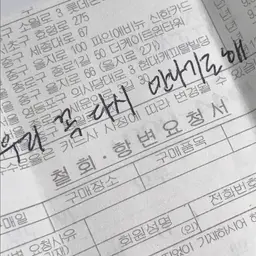 구 소월로 3 롯데
초구 효령로 275
구 세종대로 67
구 을지로 100 파인에비뉴 신한카드
종로구 종로1길 50 더케이트윈타워
중구 을지로 66 (을지로 2가)
영등포구 의사당대로 3 현대캐피탈빌딩
우리 꼭 다시 만나기로해
카드사 사정에 따라 변경될 수 있음
철회·항변요청서
구매장소
구매품목
회원성명
(인)
전화번호
매일
요청사유
기재하시어